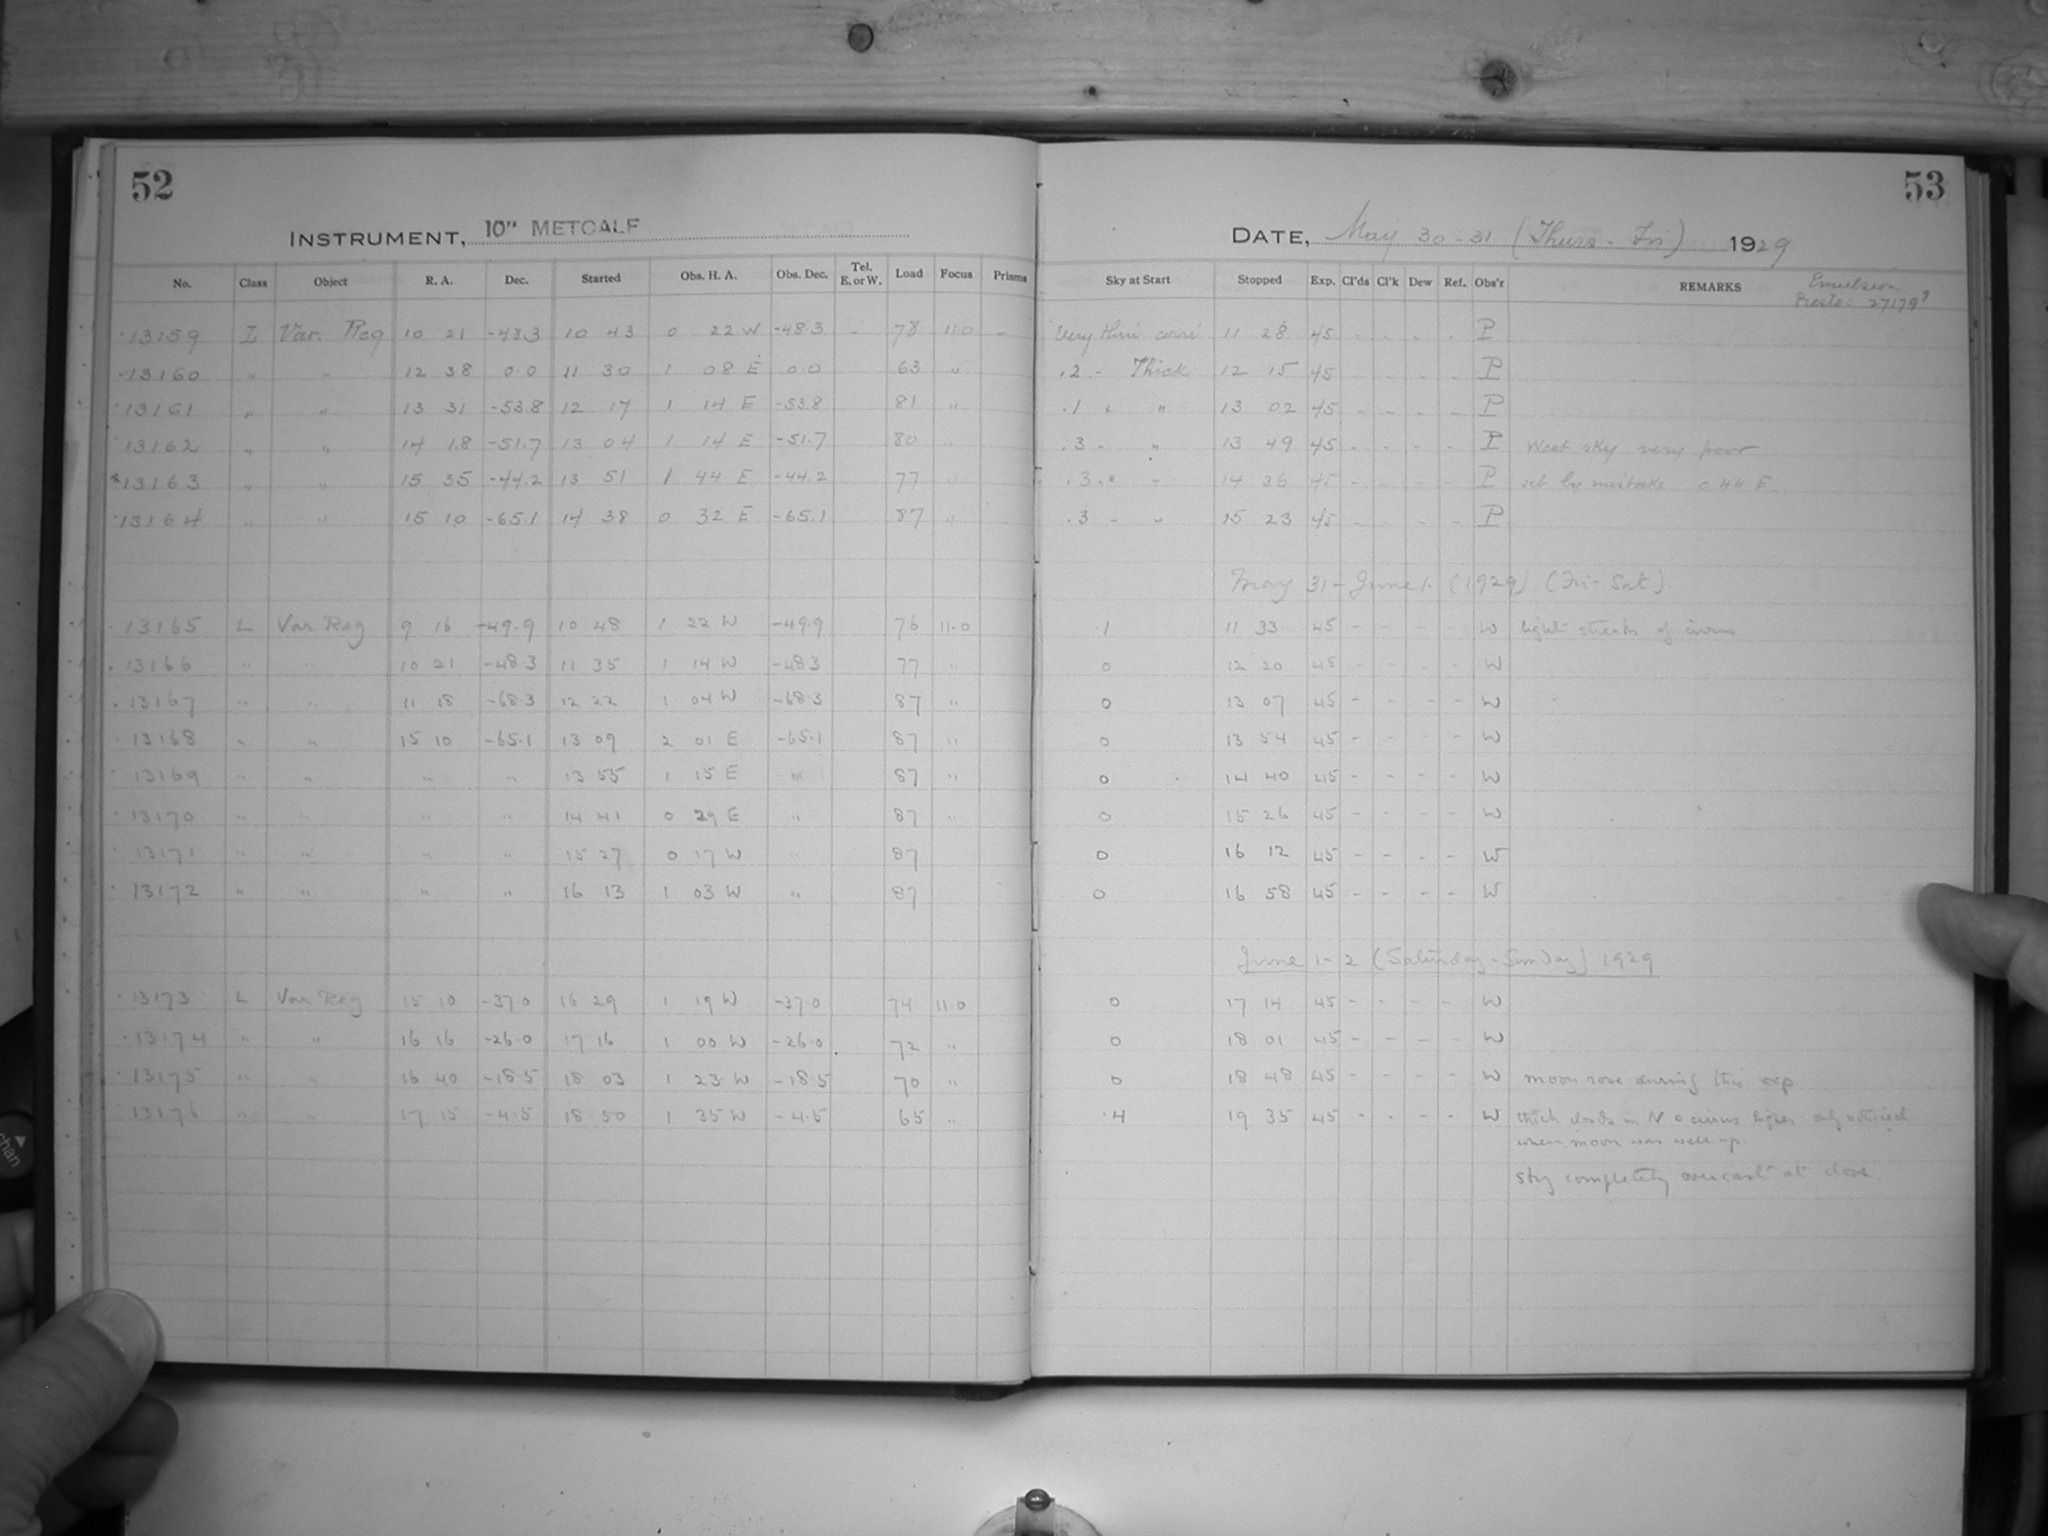 52
INSTRUMENT, 10" METCALF
No. Class Object R. A. Dec. Started Obs. H. A. Obs. Dec. Tel. E. or W. Load Focus Prisms
13159 L Var. Reg 10 21 -48.3 10 43 0 22 W -48.3 - 78 11.0 -
13160 " " 12 38 0.0 11 30 1 08 E 0.0 63 "
13161 " " 13 31 -53.8 12 17 1 14 E -53.8 81 "
13162 " " 14 18 -51.7 13 04 1 14 E -51.7 80 "
13163 " " 15 35 -44.2 13 51 1 44 E -44.2 77 "
13164 " " 15 10 -65.1 14 38 0 32 E -65.1 87 "
13165 L Var Reg 9 16 -49.9 10 48 1 22 W -49.9 76 11.0
13166 " " 10 21 -48.3 11 35 1 14 W -48.3 77 "
13167 " " 11 18 -68.3 12 22 1 04 W -68.3 87 "
13168 " " 15 10 -65.1 13 09 2 01 E -65.1 87 "
13169 " " " " 13 55 1 15 E " 87 "
13170 " " " " 14 41 0 29 E " 87 "
13171 " " " " 15 27 0 17 W " 87
13172 " " " " 16 13 1 03 W " 87
13173 L Var Reg 15 10 -37.0 16 29 1 19 W -37.0 74 11.0
13174 " " 16 16 -26.0 17 16 1 00 W -26.0 72 "
13175 " " 16 40 -18.5 18 03 1 23 W -18.5 70 "
13176 " " 17 15 -4.5 18 50 1 35 W -4.5 65 "
53
DATE, May 30-31 (Thurs - Fri) 1929
Sky at Start Stopped Exp. Cl'ds Cl'k Dew Ref. Obs'r REMARKS Emulsion
27179
Very thin cirri 11 28 45 - - - - P
.2 - Thick 12 15 45 - - - - P
.1 " " 13 02 45 - - - - P
.3 - " 13 49 45 - - - - P West sky very poor
.3 " " 14 36 45 - - - - P set by mistake 0 44 E
.3 - " 15 23 45 - - - - P
May 31 - June 1. (1929) (Fri - Sat)
.1 11 33 45 - - - - W light streaks of cirrus
0 12 20 45 - - - - W
0 13 07 45 - - - - W
0 13 54 45 - - - - W
0 14 40 45 - - - - W
0 15 26 45 - - - - W
0 16 12 45 - - - - W
0 16 58 45 - - - - W
June 1-2 (Saturday - Sunday) 1929
0 17 14 45 - - - - W
0 18 01 45 - - - - W
0 18 48 45 - - - - W moon rose during this exp
.4 19 35 45 - - - - W thick clouds in N cirrus higher only noticed
when moon was well up.
sky completely overcast at close